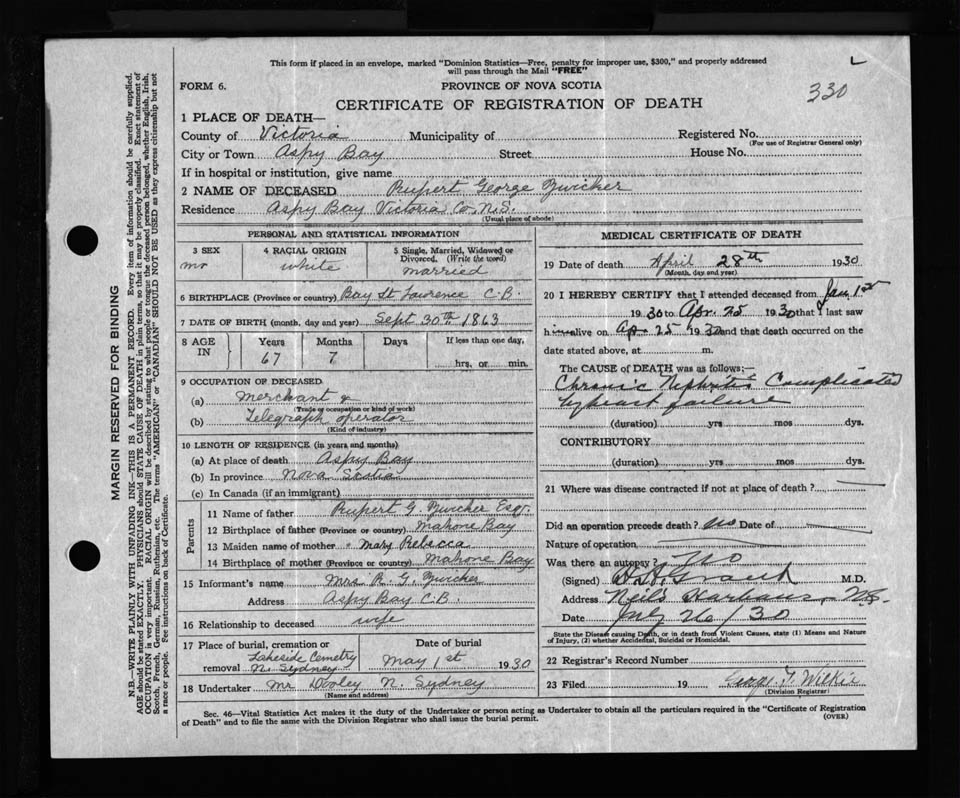 This form if placed in an envelope, marked "Dominion Statistics—Free, penalty for improper use, $300," and properly addressed
will pass through the Mail "FREE"
FORM 6.
PROVINCE OF NOVA SCOTIA
330
CERTIFICATE OF REGISTRATION OF DEATH
1 PLACE OF DEATH—
County of Victoria Municipality of Registered No.
(For use of Registrar General only)
City or Town Aspy Bay Street House No.
If in hospital or institution, give name
2 NAME OF DECEASED Rupert George Zwicker
Residence Aspy Bay Victoria Co. N.S.
(Usual place of abode)
PERSONAL AND STATISTICAL INFORMATION
3 SEX 4 RACIAL ORIGIN 5 Single, Married, Widowed or Divorced. (Write the word)
white married
6 BIRTHPLACE (Province or country) Bay St Lawrence C.B.
7 DATE OF BIRTH (month, day and year) Sept 30th 1863
8 AGE IN Years Months Days If less than one day,
67 7 hrs. or min.
9 OCCUPATION OF DECEASED
(a) Merchant &
(Trade or occupation or kind of work)
(b) Telegraph operator
(Kind of industry)
10 LENGTH OF RESIDENCE (in years and months)
(a) At place of death Aspy Bay
(b) In province Nova Scotia
(c) In Canada (if an immigrant)
Parents
11 Name of father Rupert G. Zwicker Esqr.
12 Birthplace of father (Province or country) Mahone Bay
13 Maiden name of mother Mary Rebecca
14 Birthplace of mother (Province or country) Mahone Bay
15 Informant's name Mrs R. G. Zwicker
Address Aspy Bay C.B.
16 Relationship to deceased wife
17 Place of burial, cremation or removal Date of burial
Lakeside Cemetry
N. Sydney May 1st 1930
18 Undertaker Mr Dooley N. Sydney
(Name and address)
MEDICAL CERTIFICATE OF DEATH
19 Date of death April 28th 1930
(Month, day and year)
20 I HEREBY CERTIFY that I attended deceased from Jan 1st
1930 to Apr. 25 1930 that I last saw
him alive on Ap. 25 1930 and that death occurred on the
date stated above, at m.
The CAUSE of DEATH was as follows:
Chronic Nephritis Complicated
by heart failure
(duration) yrs mos dys.
CONTRIBUTORY
(duration) yrs mos dys.
21 Where was disease contracted if not at place of death?
Did an operation precede death? no Date of
Nature of operation
Was there an autopsy? no
(Signed) M.D.
Address Neil's Harbour, N.S.
Date July 26/30
State the Disease causing Death, or in death from Violent Causes, state (1) Means and Nature
of Injury, (2) whether Accidental, Suicidal or Homicidal.
22 Registrar's Record Number
23 Filed 19
(Division Registrar)
Sec. 46—Vital Statistics Act makes it the duty of the Undertaker or person acting as Undertaker to obtain all the particulars required in the "Certificate of Registration
of Death" and to file the same with the Division Registrar who shall issue the burial permit. (OVER)
MARGIN RESERVED FOR BINDING
N.B.—WRITE PLAINLY WITH UNFADING INK—THIS IS A PERMANENT RECORD. Every item of information should be carefully supplied.
AGE should be stated EXACTLY. PHYSICIANS should STATE CAUSE OF DEATH in plain terms, so that it may be properly classified. Exact statement of
OCCUPATION is very important. RACIAL ORIGIN will be described by stating to what people or tongue the deceased person belonged, whether English, Irish,
Scotch, French, German, Russian, Ruthenian, etc. The terms "AMERICAN" or "CANADIAN" SHOULD NOT BE USED as they express citizenship but not
a race or people. Fee instructions on back of Certificate.